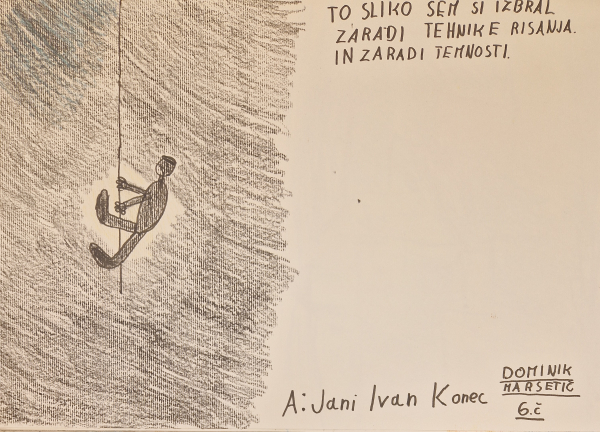 TO SLIKO SEM SI IZBRAL
ZARADI TEHNIKE RISANJA.
IN ZARADI TEMNOSTI.
A: Jani Ivan Konec
DOMINIK
MARSETIČ
6.č